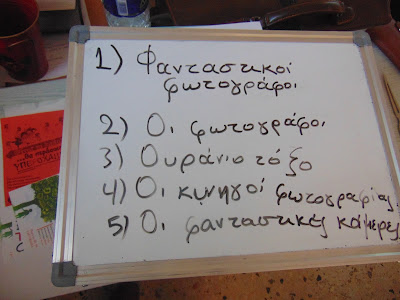 1) Φανταστικοί
φωτογράφοι
2) Οι φωτογράφοι
3) Ουράνιο τόξο
4) Οι κυνηγοί φωτογραφίας
5) Οι φανταστικές κάμερες